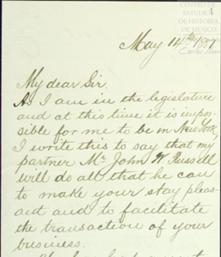 May 14th 1887
My dear Sir,
As I am in the legislature
and at this time it is impos-
sible for me to be in New York
I write this to say that my
partner Mr John W. Russell
will do all that he can
to make your stay pleas-
ant and to facilitate
the transaction of your
business.